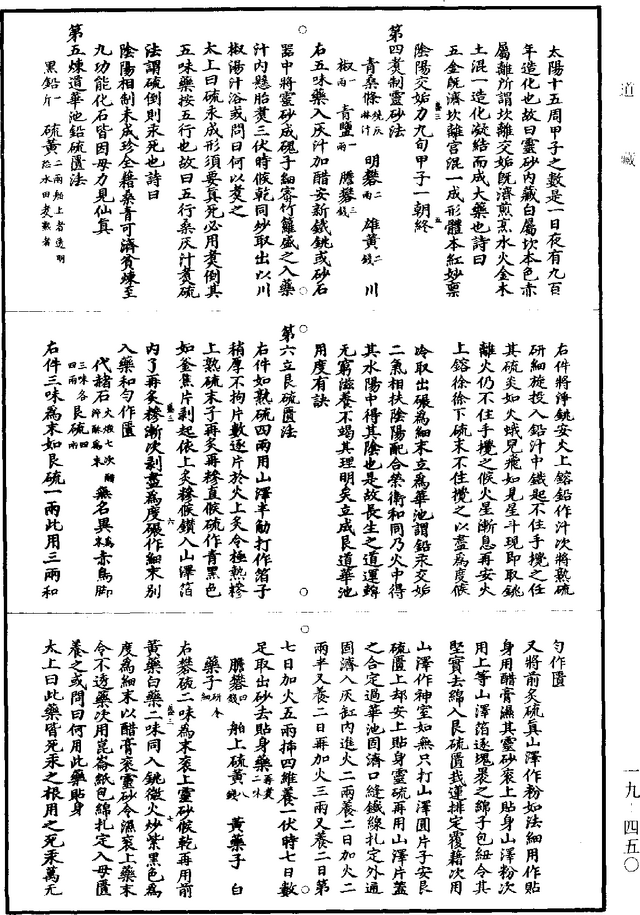 道藏
太陽十五周甲子之數是一日夜有九百
年造化也故曰靈砂内藏白屬坎本色赤
屬離所謂坎離交姤既濟煎烹水火金木
土混一造化凝結而成大藥也詩曰
五金既濟坎離宫混一成形體本紅妙禀
陰陽交姤力九旬甲子一朝終
第四煑制靈砂法
青桑條燒灰淋汁 明礬二兩 雄黄二錢 川
椒一兩 青鹽一兩 膽礬三錢
右五味藥入灰汁加醋安新鐵銚或砂石
器中將靈砂成塊子細密竹籮盛之入藥
汁内懸胎煑三伏時候乾同炒取出以川
椒湯汁浴或問曰何以煑之
太上曰硫汞成形須要真死必用煑倒其
五味藥按五行也故曰五行桑灰汁煑硫
法謂硫倒則汞死也詩曰
陰陽相制未成珍全藉桑青可濟貧煉至
九功能化石皆因母力見仙真
第五煉道華池鉛硫匱法
黑鉛一斤 硫黄二兩舶上者透明
右件將淨銚安火上鎔鉛作汁次將熟硫
研細旋投入鉛汁中鐵起不住手攪之任
其硫炎如火蛾兒飛如見星斗現即取銚
離火仍不住手攪之候火星漸息再安火
上鎔徐徐下硫末不住攪之以盡爲度候
冷取出碾爲細末立爲華池謂鉛汞交姤
二氣相扶陰陽配合榮衛和同乃火中得
其水陽中得其陰也是故長生之道運斡
无窮滋養不竭其理明矣立成艮道華池
用度有訣
第六立艮硫匱法
右件如熟硫四兩用山澤半觔打作箔子
稍厚不拘片數逐片於火上炙令極熱糝
上熟硫末子再炙再糝直候硫作青黑色
如釜焦片剥起依上炙糝候鑽入山澤箔
内了再炙糝漸次剥盡爲度碾作細末别
入藥和匀作匱
代赭石火煅七次醋淬酥爲末 無名異爲末 赤烏脚
三味各四兩 艮硫四兩
右件三味爲末如艮硫一兩此用三兩和
匀作匱
又將前炙硫真山澤作粉如法細用作貼
身用醋膏濕其靈砂衮上貼身山澤粉次
用上等山澤箔逐塊裹之綿子包紐令其
堅實去綿入艮硫匱栽蓮排定覆藉次用
山澤作神室如無只打山澤圓片子安艮
硫匱上却安上貼身靈硫再用山澤片蓋
之合定過華池固濟口縫鐵線扎定外通
固濟入灰缸内進火二兩養二日加火二
兩半又養二日再加火三兩又養二日第
七日加火五兩插四維養一伏時七日數
足取出砂去貼身藥再煑二味
膽礬四錢 舶上硫黄八錢 黄藥子 白
藥子研各末細
右礬硫二味爲末衮上靈砂候乾再用前
黄藥白藥二味同入銚微火炒紫黑色爲
度爲細末以醋膏衮靈砂令濕衮上藥末
令不透藥次用崑崙紙包綿扎定入母匱
養之或問曰何用此藥貼身
太上曰此藥皆死汞之根用之死汞萬无
一九·四五〇